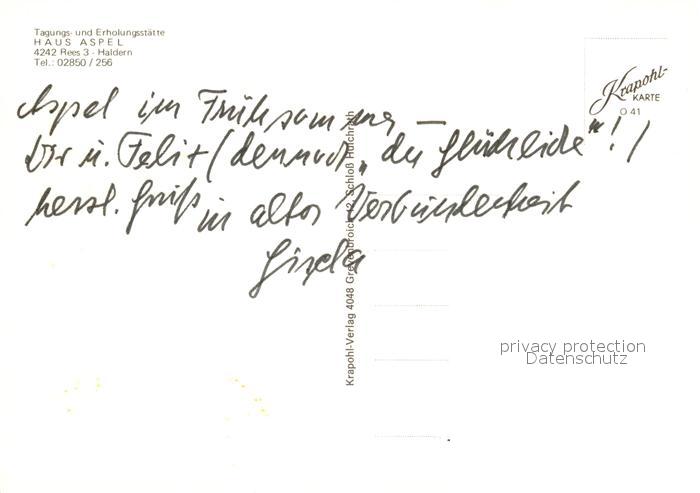 Tagungs- und Erholungsstätte
HAUS ASPEL
4242 Rees 3 - Haldern
Tel.: 02850 / 256
Krapohl-
KARTE
O 41
Aspel im Frühsommer —
Dir u. Felix (dennoch „der Glückliche“!)
herzl. Gruß in alter Verbundenheit
Gisela
Krapohl-Verlag 4048 Grevenbroich 2, Schloß Hülchrath
privacy protection
Datenschutz